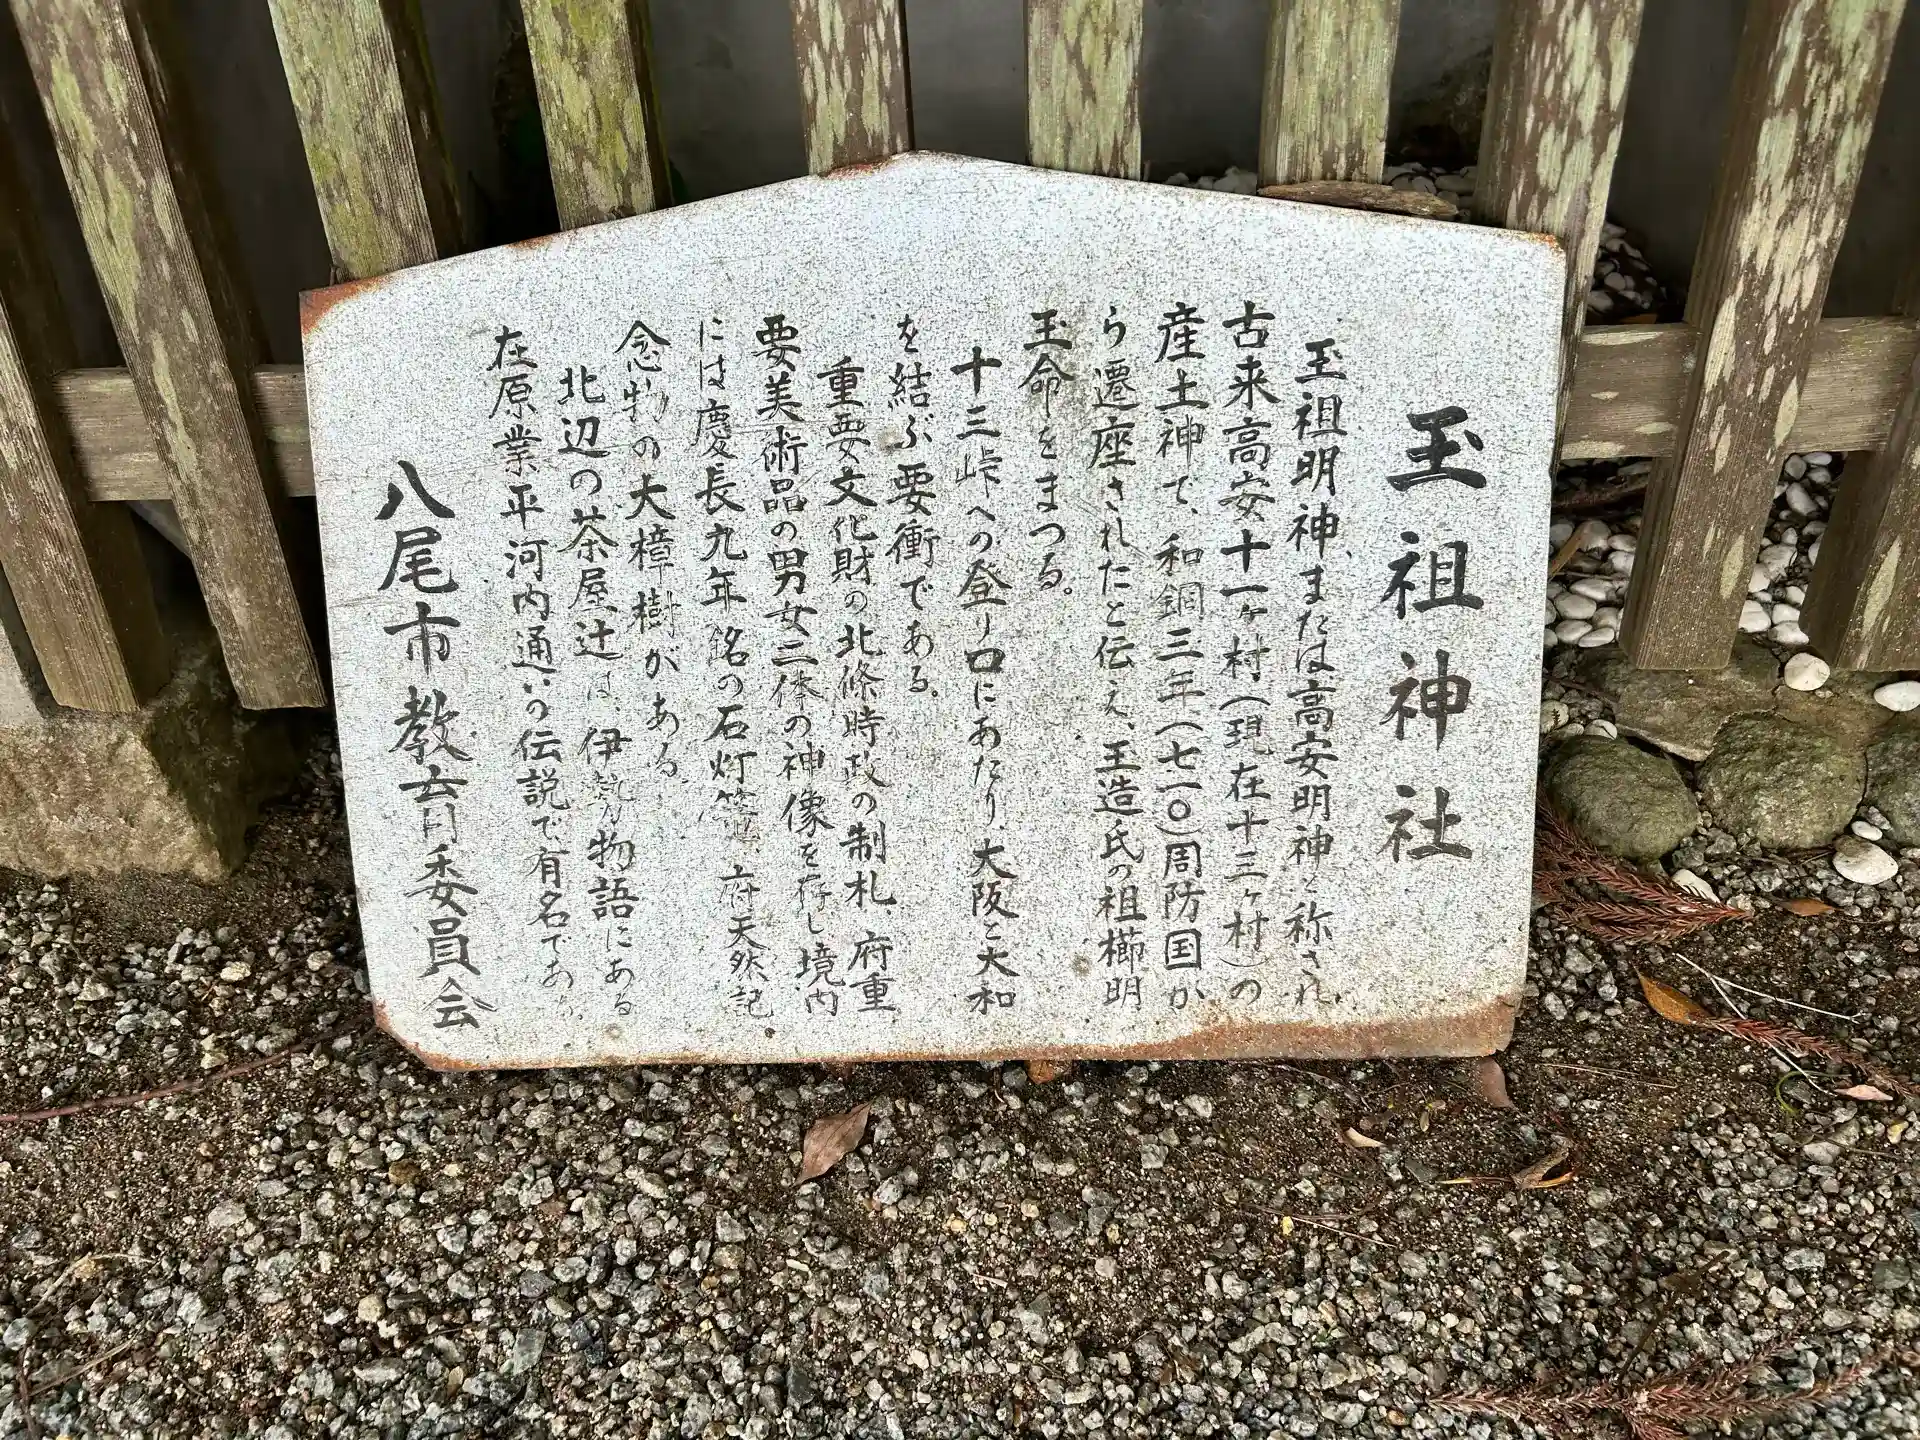 玉祖神社
玉祖明神、または高安明神と称され
古来高安十一ヶ村(現在十三ヶ村)の
産土神で、和銅三年(七一〇)周防国か
ら遷座されたと伝え、玉造氏の祖櫛明
玉命をまつる。
十三峠への登り口にあたり、大阪と大和
を結ぶ要衝である。
重要文化財の北條時政の制札、府重
要美術品の男女二体の神像を存し、境内
には慶長九年銘の石灯篭、府天然記
念物の大樟樹がある。
北辺の茶屋辻は、伊勢物語にある
在原業平河内通いの伝説で有名であり、
八尾市教育委員会